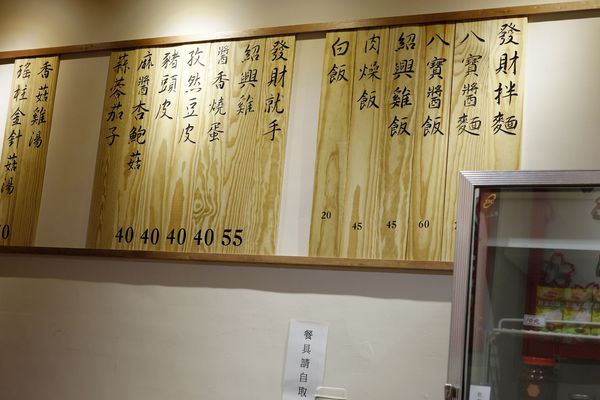 發財拌麵
八寶醬麵
八寶醬飯
60
紹興雞飯
45
肉燥飯
45
白飯
20
發財就手
紹興雞
55
醬香燒蛋
40
孜然豆皮
40
豬頭皮
40
麻醬杏鮑菇
40
蒜蓉茄子
香菇雞湯
瑤柱金針菇湯
餐具請自取